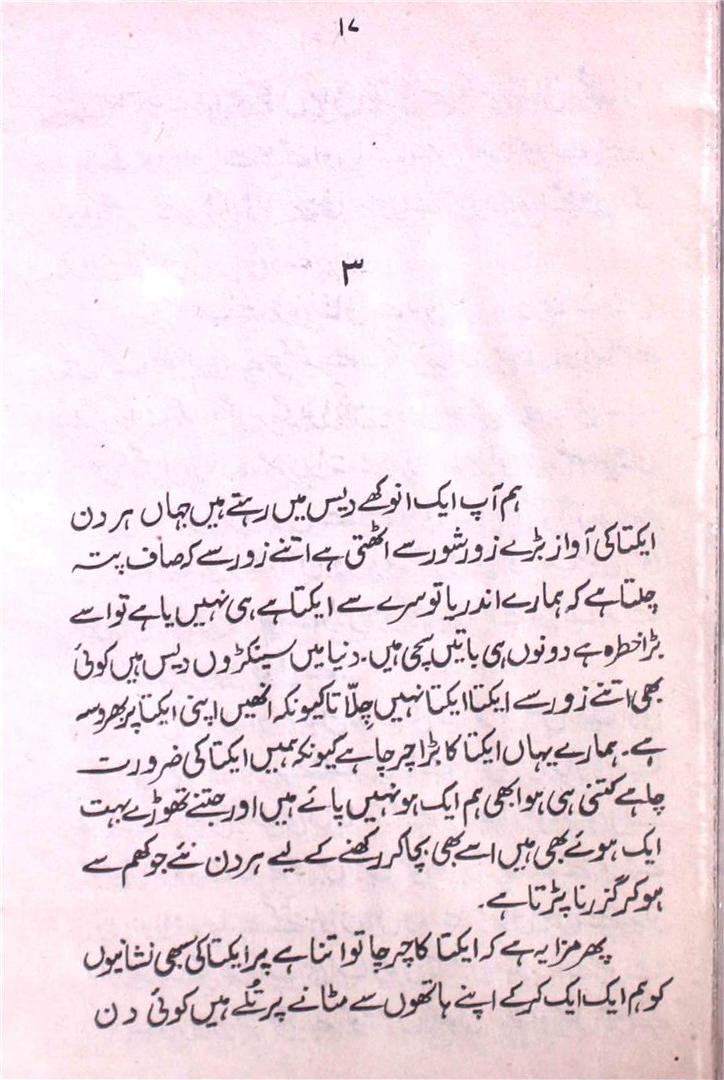 ۱۷
۳
ہم آپ ایک انوکھے دیس میں رہتے ہیں جہاں ہر دن
ایکتا کی آواز بڑے زور شور سے اٹھتی ہے اتنے زور سے کہ صاف پتہ
چلتا ہے کہ ہمارے اندر یا تو سرے سے ایکتا ہے ہی نہیں یا ہے تو اسے
بڑا خطرہ ہے دونوں ہی باتیں سچی ہیں۔ دنیا میں سینکڑوں دیس ہیں کوئی
بھی اتنے زور سے ایکتا ایکتا نہیں چلّاتا کیونکہ انھیں اپنی ایکتا پر بھروسہ
ہے۔ ہمارے یہاں ایکتا کا بڑا چرچا ہے کیونکہ ہمیں ایکتا کی ضرورت
چاہے کتنی ہی ہو ابھی ہم ایک ہو نہیں پائے ہیں اور جتنے تھوڑے بہت
ایک ہوئے بھی ہیں اسے بھی بچا کر رکھنے کے لیے ہر دن نئے جوکھم سے
ہو کر گزرنا پڑتا ہے۔
پھر مزا یہ ہے کہ ایکتا کا چرچا تو اتنا ہے پر ایکتا کی سبھی نشانیوں
کو ہم ایک ایک کر کے اپنے ہاتھوں سے مٹانے پر تُلے ہیں کوئی دن